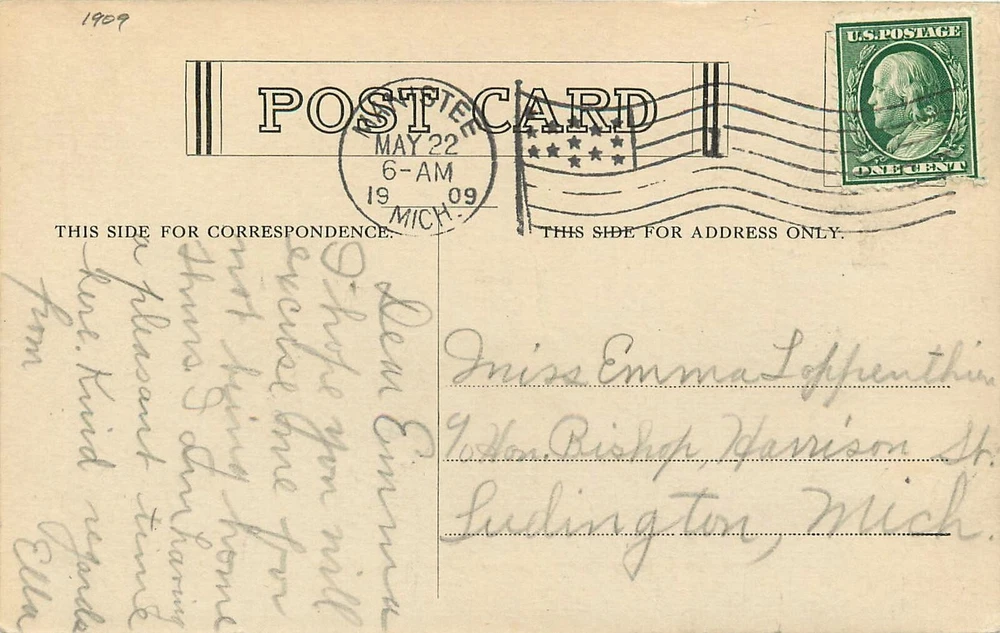 1909
U.S. POSTAGE
ONE CENT
POST CARD
MANISTEE
MAY 22
6-AM
19 09
MICH.
THIS SIDE FOR CORRESPONDENCE.
THIS SIDE FOR ADDRESS ONLY.
Dear Emma
I hope you will
excuse me for
not being home
thurs. I am having
a pleasant time
here. Kind regards
from Ella
Miss Emma Loppenthien
c/o Hon. Bishop, Harrison St.
Ludington, Mich.